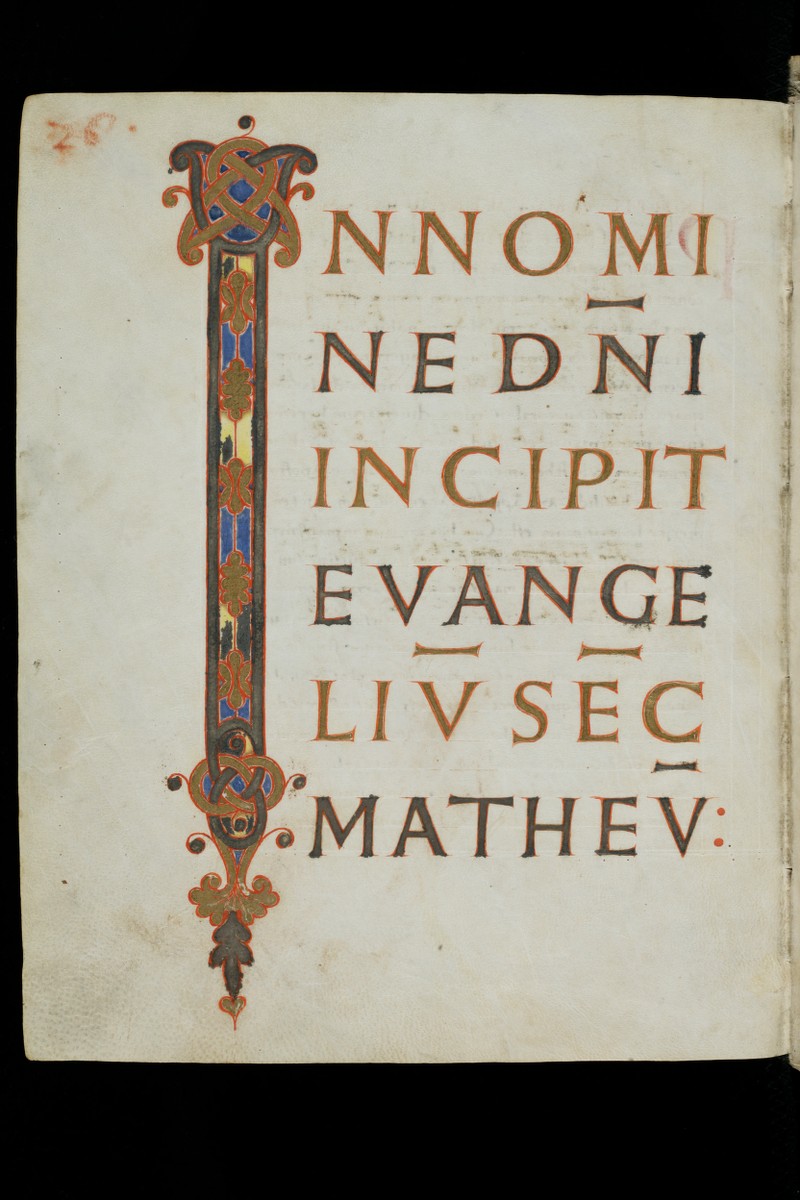 IN NOMI
NE DN̄I
INCIPIT
EVANGE
LIV̄ SEC̄
MATHEV̄: